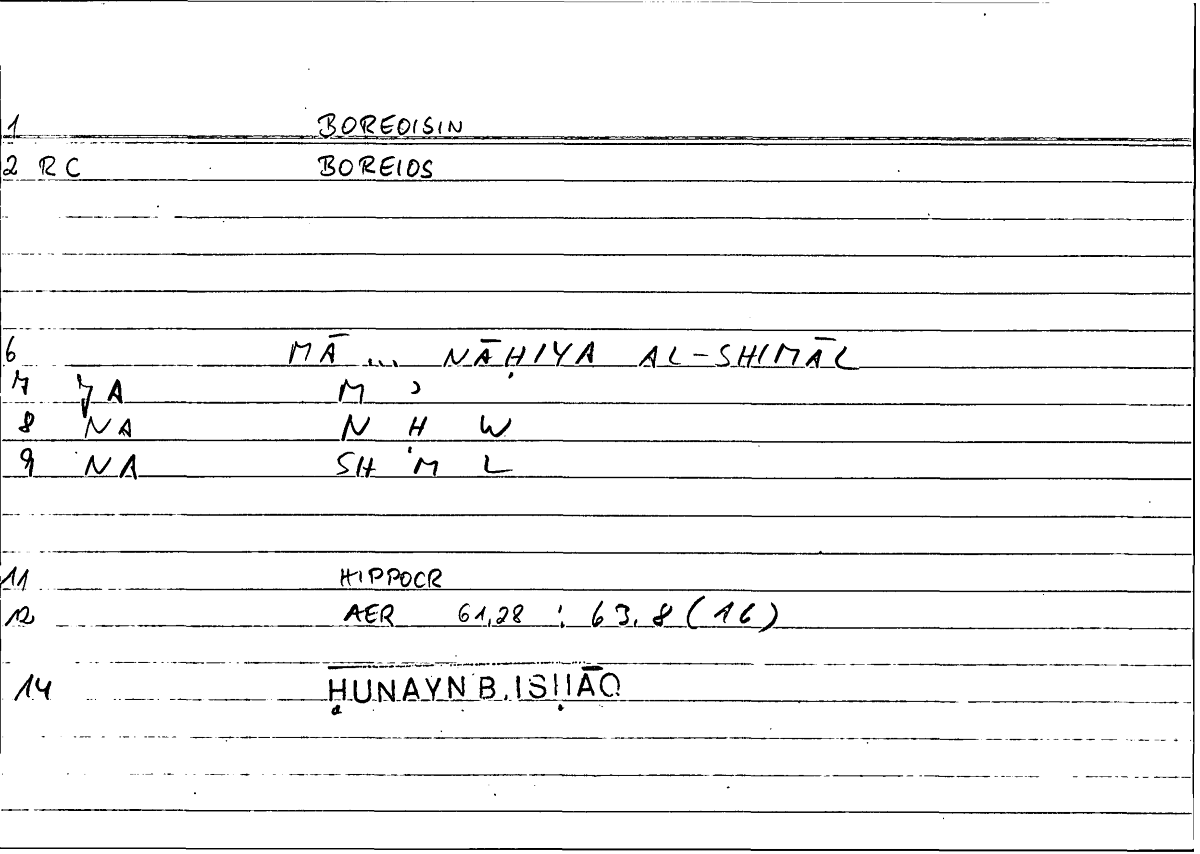 1 BOREOISIN
2 RC BOREIOS
6 MĀ ... NĀḤIYA AL-SHIMĀL
7 JA M ʾ
8 NA N Ḥ W
9 NA SH M L
11 HIPPOCR
12 AER 61,28 : 63,8 (16)
14 ḤUNAYN B. ISḤĀQ